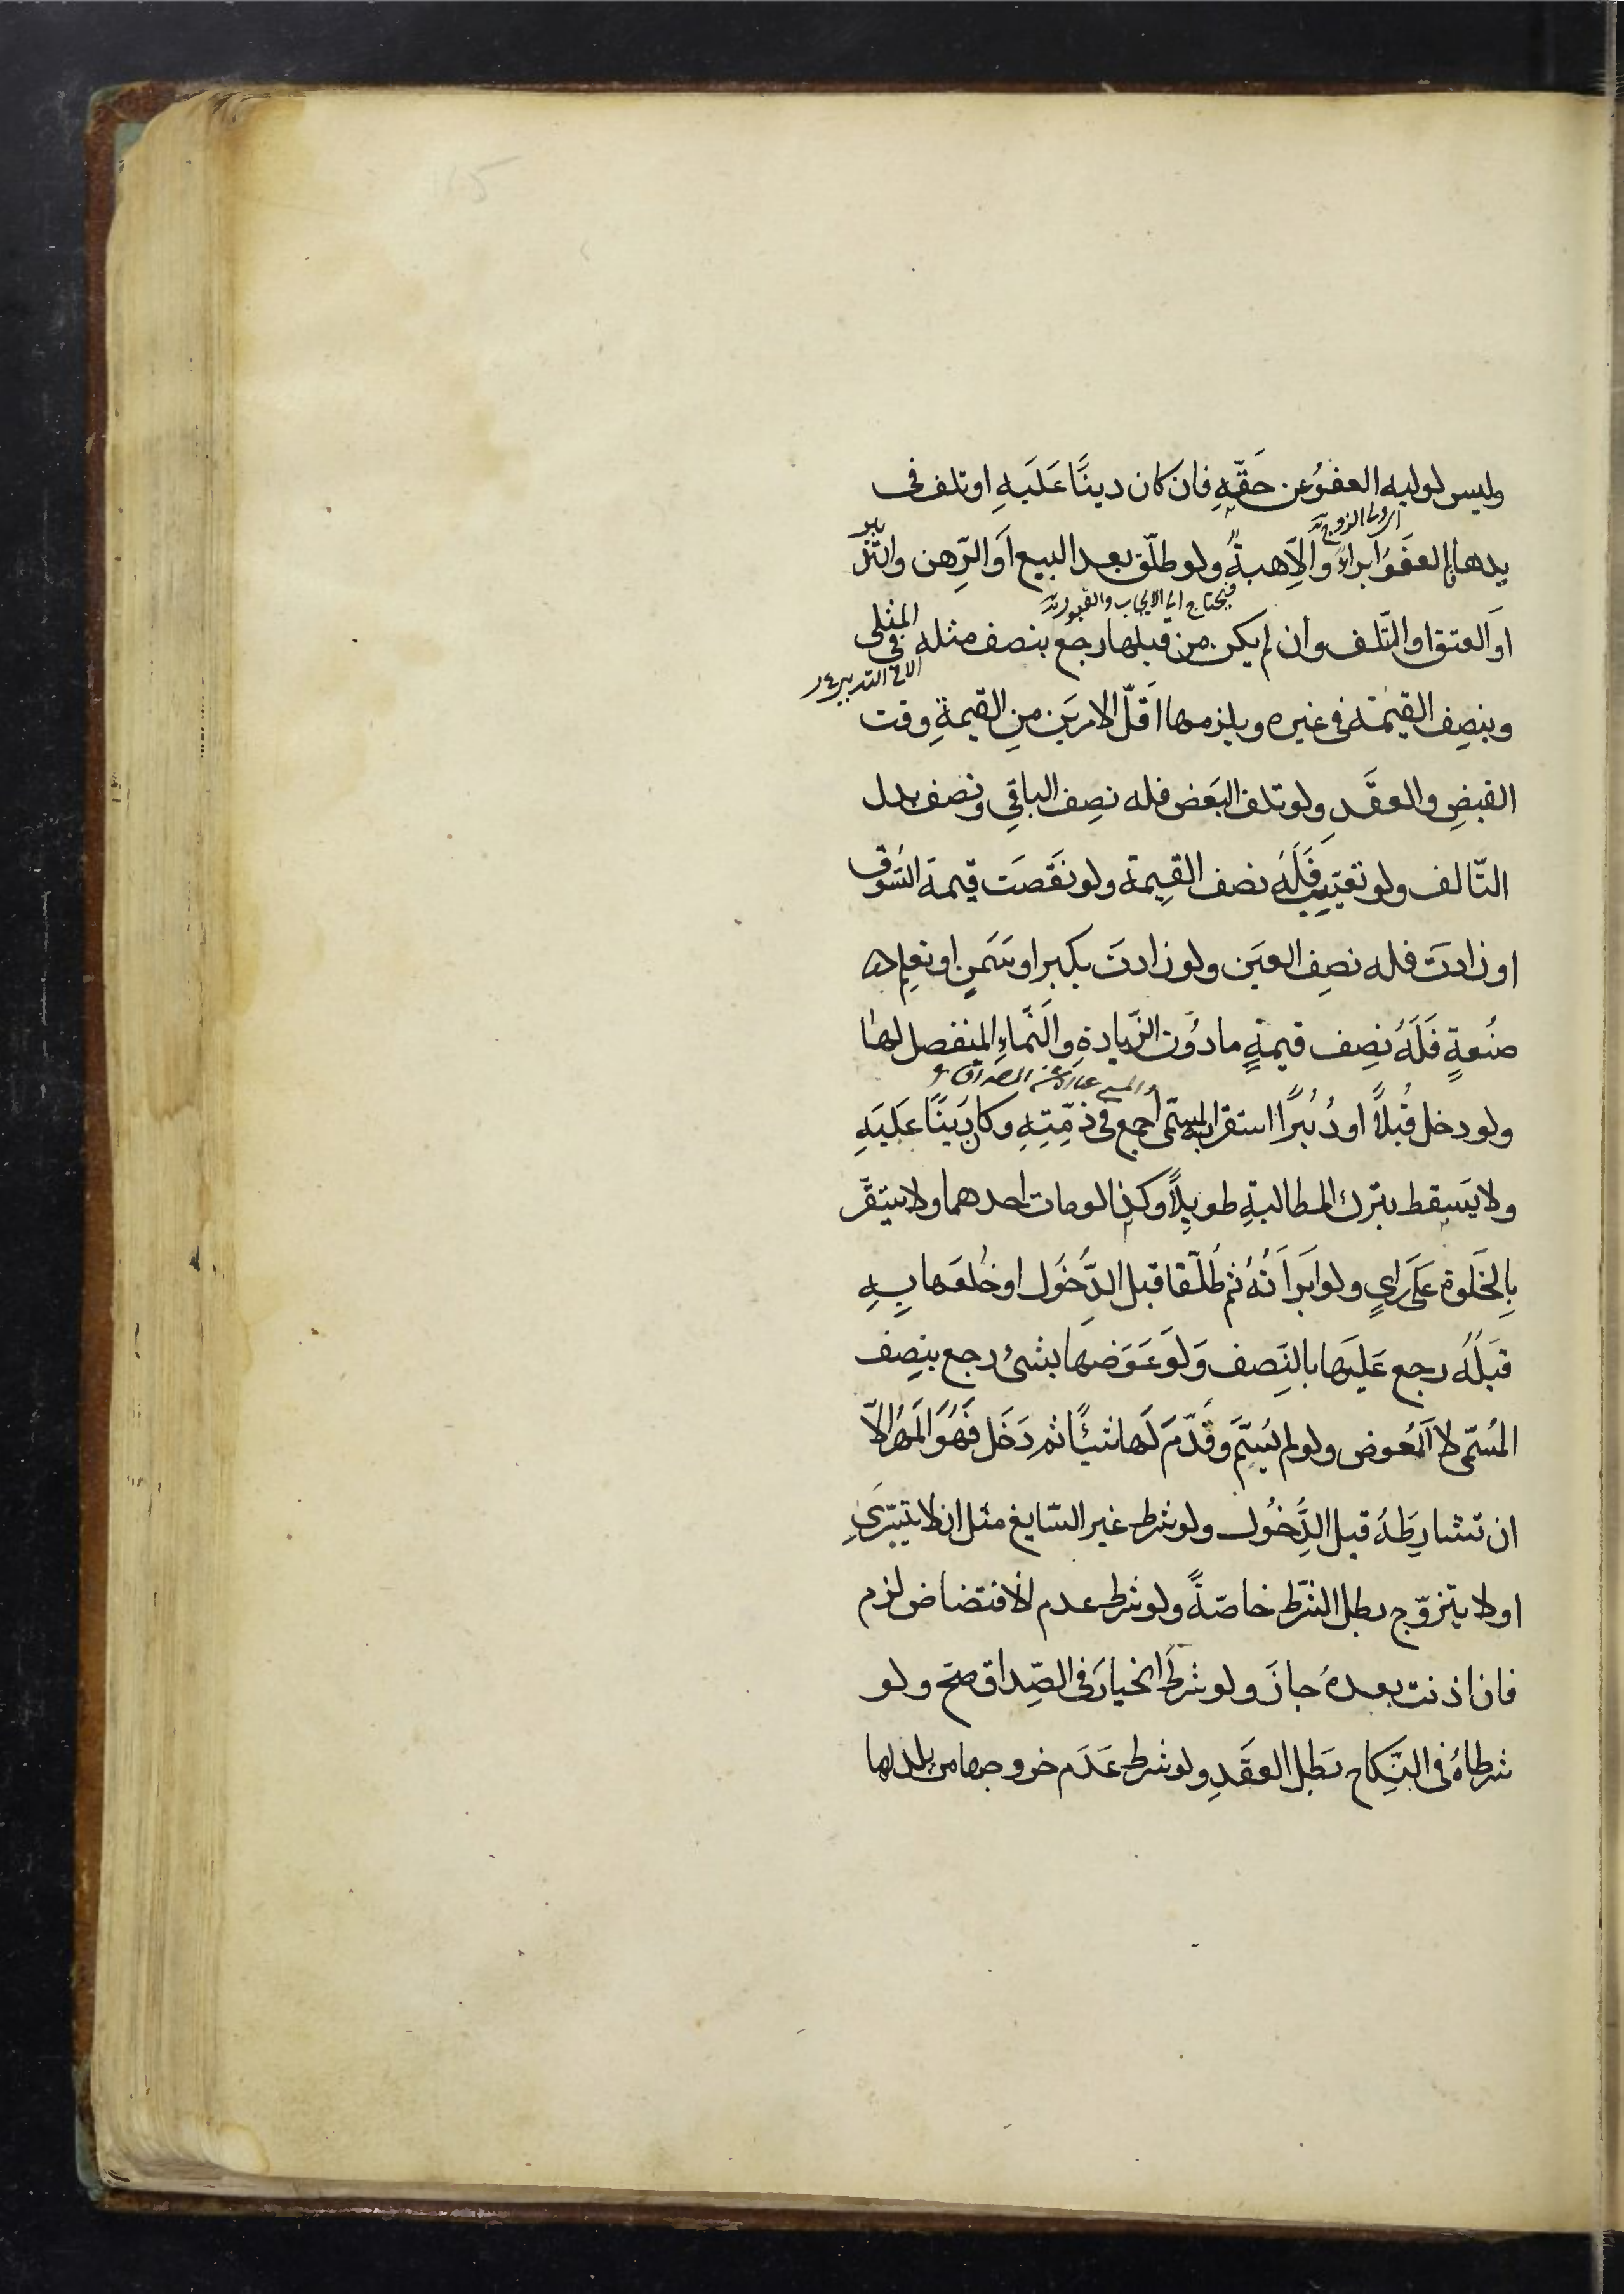 وليس لوليه العفوُ عن حَقّهِ فان كان دينًا عَلَيهِ او تلف فى
يدها فالعفوُ ابراءٌ والّا هبةٌ ولو طلّق بعد البيع اَو الرّهن والتّدبير
فيحتاج الى الايجاب والقبول
اَو العتق او التّلف وان لم يكن من قبلها رجع بنصف مثله فى المثلى
وبنصِف القيمة فى غيره ويلزمها اَقلّ الامرين منِ القيمةِ وقت
القبضِ والعقدِ ولو تلف البَعض فله نصِف الباقِى ونصف بدل
التّالف ولو تعيّب فَلَهُ نصف القِيمة ولو نَقَصَت قيمة السُّوق
او زادت فله نصِف العَين ولو زادتَ بكبر او سَمَنٍ او تعلم
صنُعةٍ فَلَهُ نصِف قيمةٍ مادوُن الزّيادةِ والَنّماءِ المنفصل لها
والمسمى عبارة عن الصداق
ولو دخل قُبلًا او دُبُرًا استقر المسمّى اجمع فى ذمّتِهِ وكان دَينًا عَلَيهِ
ولا يَسقِط بترك المطالبةِ طويلًا وكذا لو مات احدهما ولا يستقّر
بِالخَلوة عَلَى رايٍ ولو ابَراَتهُ ثم طَلّقها قبل الدُّخوُل او خَلعَها بِهِ
قَبلَهُ رجع عَليَها بالنِّصف وَلَو عَوَضها بشىء رجع بنصِف
المُسّمى لا اَلمُعوض ولو لم يُسَمّ وقَدّمَ لَها شيئًا ثم دَخَل فَهُوَ اَلمَهُر الّا
ان تشارِطَهُ قبل الدِّخُول ولو شرط غير السّايغ مثل ان لا يتسّرى
او لا يتزوّج بطل الشّرط خاصّةً ولو شرط عدم الافتضاض لزم
فان اذنت بعدهُ جازَ ولو شرط الخيارَ فى الصّداق صّح ولو
شرطاهُ فى النّكِاح بَطل العقَدِ ولو شرط عَدَم خروجها من بلدها